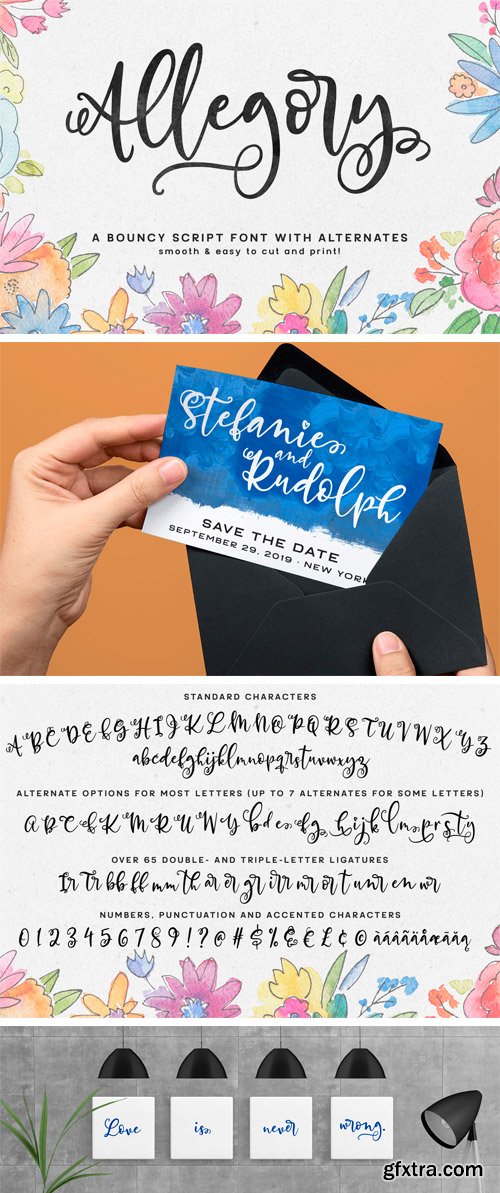 Allegory
A BOUNCY SCRIPT FONT WITH ALTERNATES
smooth & easy to cut and print!
Stefanie
and
Rudolph
SAVE THE DATE
SEPTEMBER 29, 2019 · NEW YORK
STANDARD CHARACTERS
A B C D E F G H I J K L M N O P Q R S T U V W X Y Z
abcdefghijklmnopqrstuvwxyz
ALTERNATE OPTIONS FOR MOST LETTERS (UP TO 7 ALTERNATES FOR SOME LETTERS)
A B C F K M R U W Y b d e f g h i j k l m p r s t y
OVER 65 DOUBLE- AND TRIPLE-LETTER LIGATURES
Ir Tr bb ff mm th ar er gr irr mr or t unr en wr
NUMBERS, PUNCTUATION AND ACCENTED CHARACTERS
0 1 2 3 4 5 6 7 8 9 ! ? @ # $ % € £ ¢ © àáâãäåæāăą
Love is never wrong.
gfxtra.com